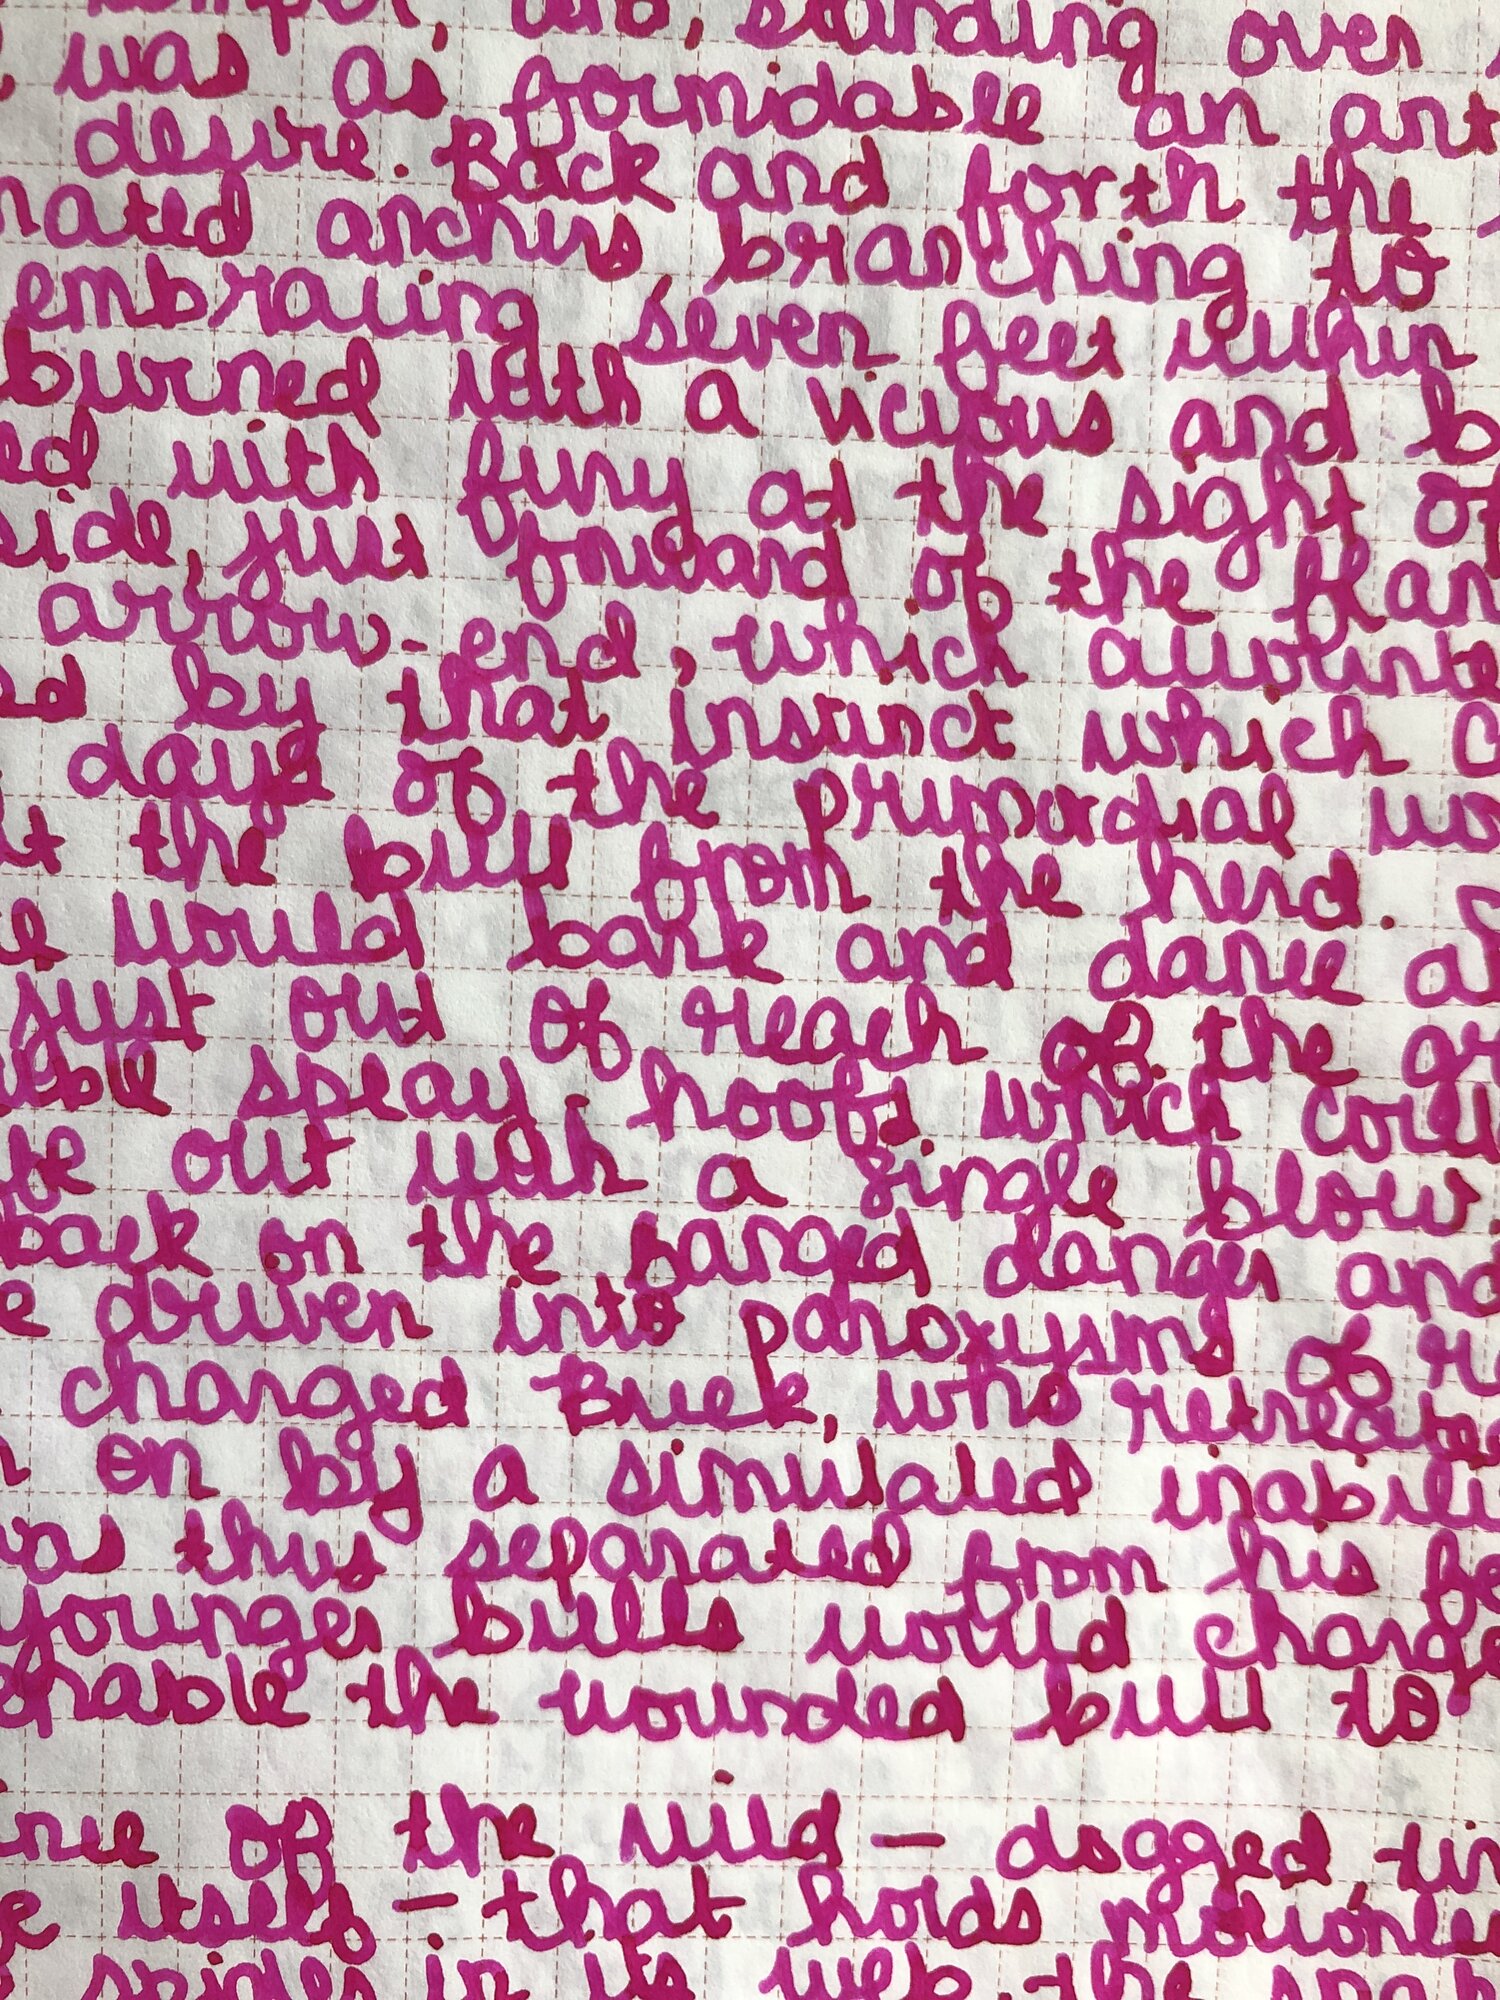 temper, and, standing over
was as formidable an ant
desire. Back and forth the
nated anchers branching to
embracing seven feet within
burned with a vicious and b
ed with fury at the sight of
side, just forward of the flan
arrow-end, which accounte
ed by that instinct which c
days of the primordial wo
t the bull from the herd.
e would bark and dance a
just out of reach of the gr
ible splay hoofs which coul
ife out with a single blow.
back on the fanged danger and
e driven into paroxysms of r
charged Buck, who retreate
n on by a simulated inabili
as thus separated from his fe
younger bulls would charge
enable the wounded bull to
ence of the wild — dogged tir
e itself — that holds motionle
spider in its web, the snak